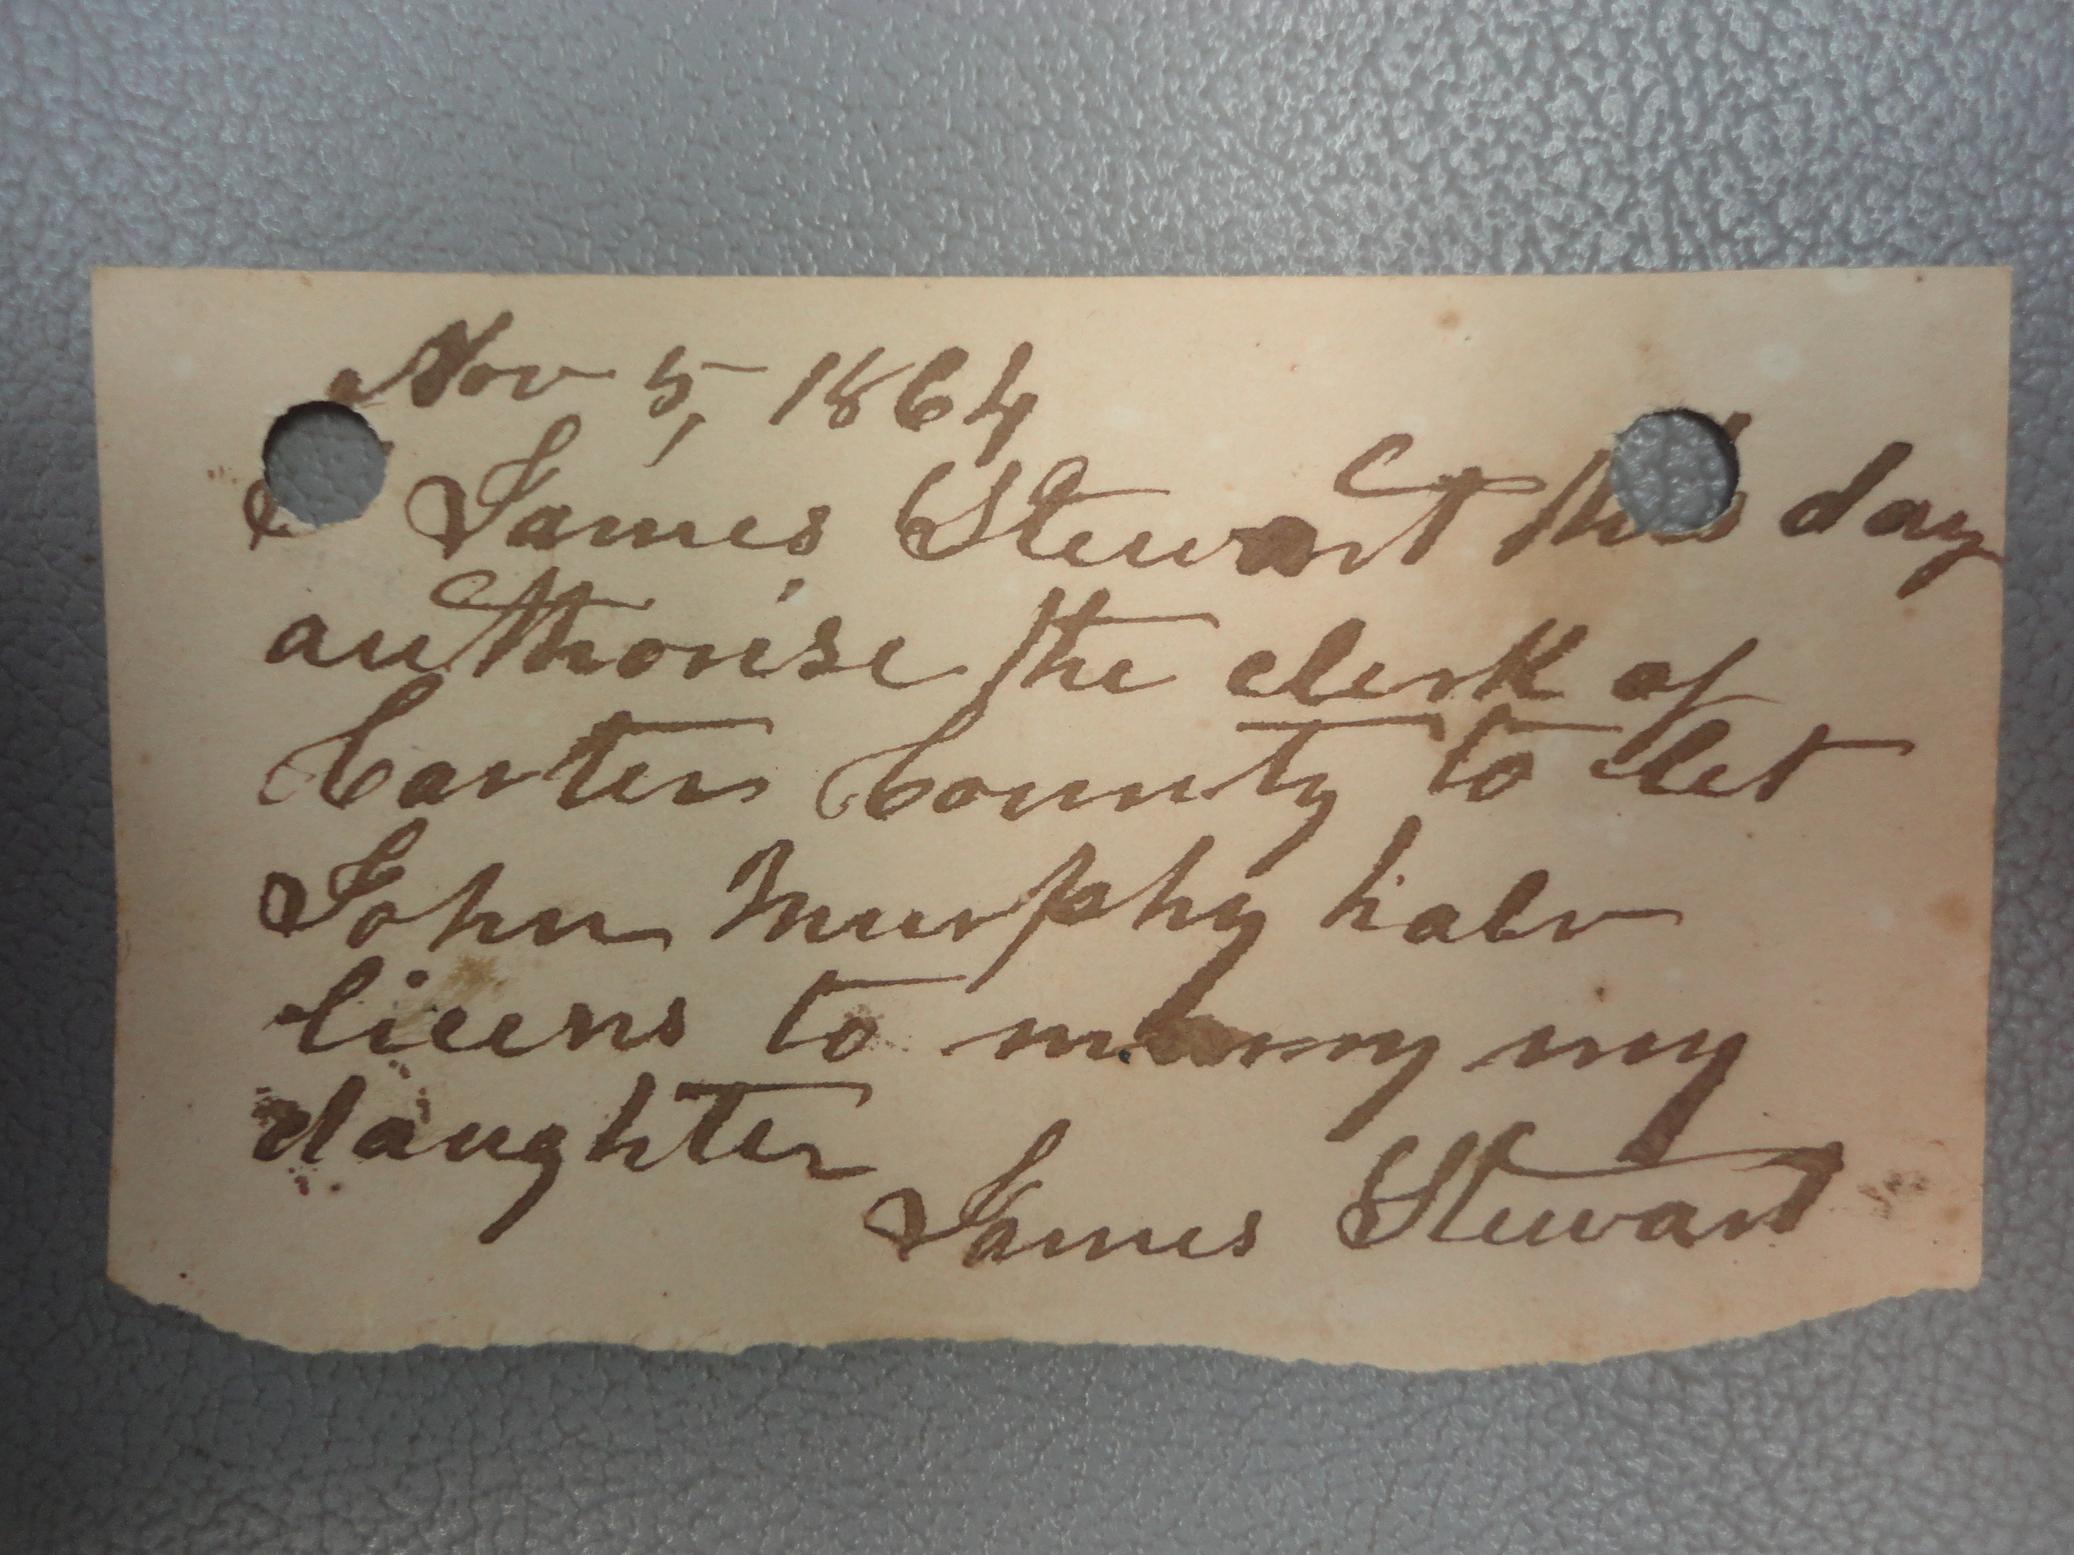 Nov 5, 1864
I James Stewart this day
authorise the clerk of
Carter County to let
John Murphy habv
licens to marry my
daughter
James Stewart